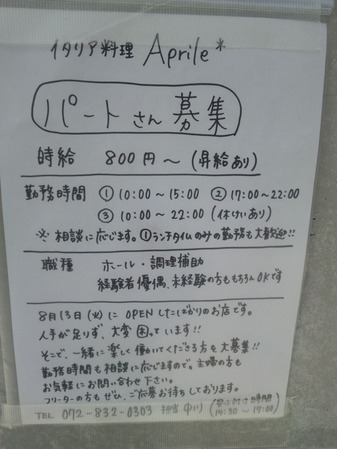 イタリア料理 Aprile*
パートさん募集
時給 800円〜(昇給あり)
勤務時間 ① 10:00〜15:00 ② 17:00〜22:00
③ 10:00〜22:00 (休けいあり)
※相談に応じます。①ランチタイムのみの勤務も大歓迎!!
職種 ホール・調理補助
経験者優遇、未経験の方ももちろんOKです
8月13日(火)に OPENしたばかりのお店です。
人手が足りず、大変困っています!!
そこで、一緒に楽しく働いてくださる方を大募集!!
勤務時間も相談に応じますので、主婦の方も
お気軽にお問い合わせ下さい。
フリーターの方もぜひ、ご応募お待ちしております。
TEL 072-832-0303 担当 中川 (受け付け時間 14:30〜17:00)